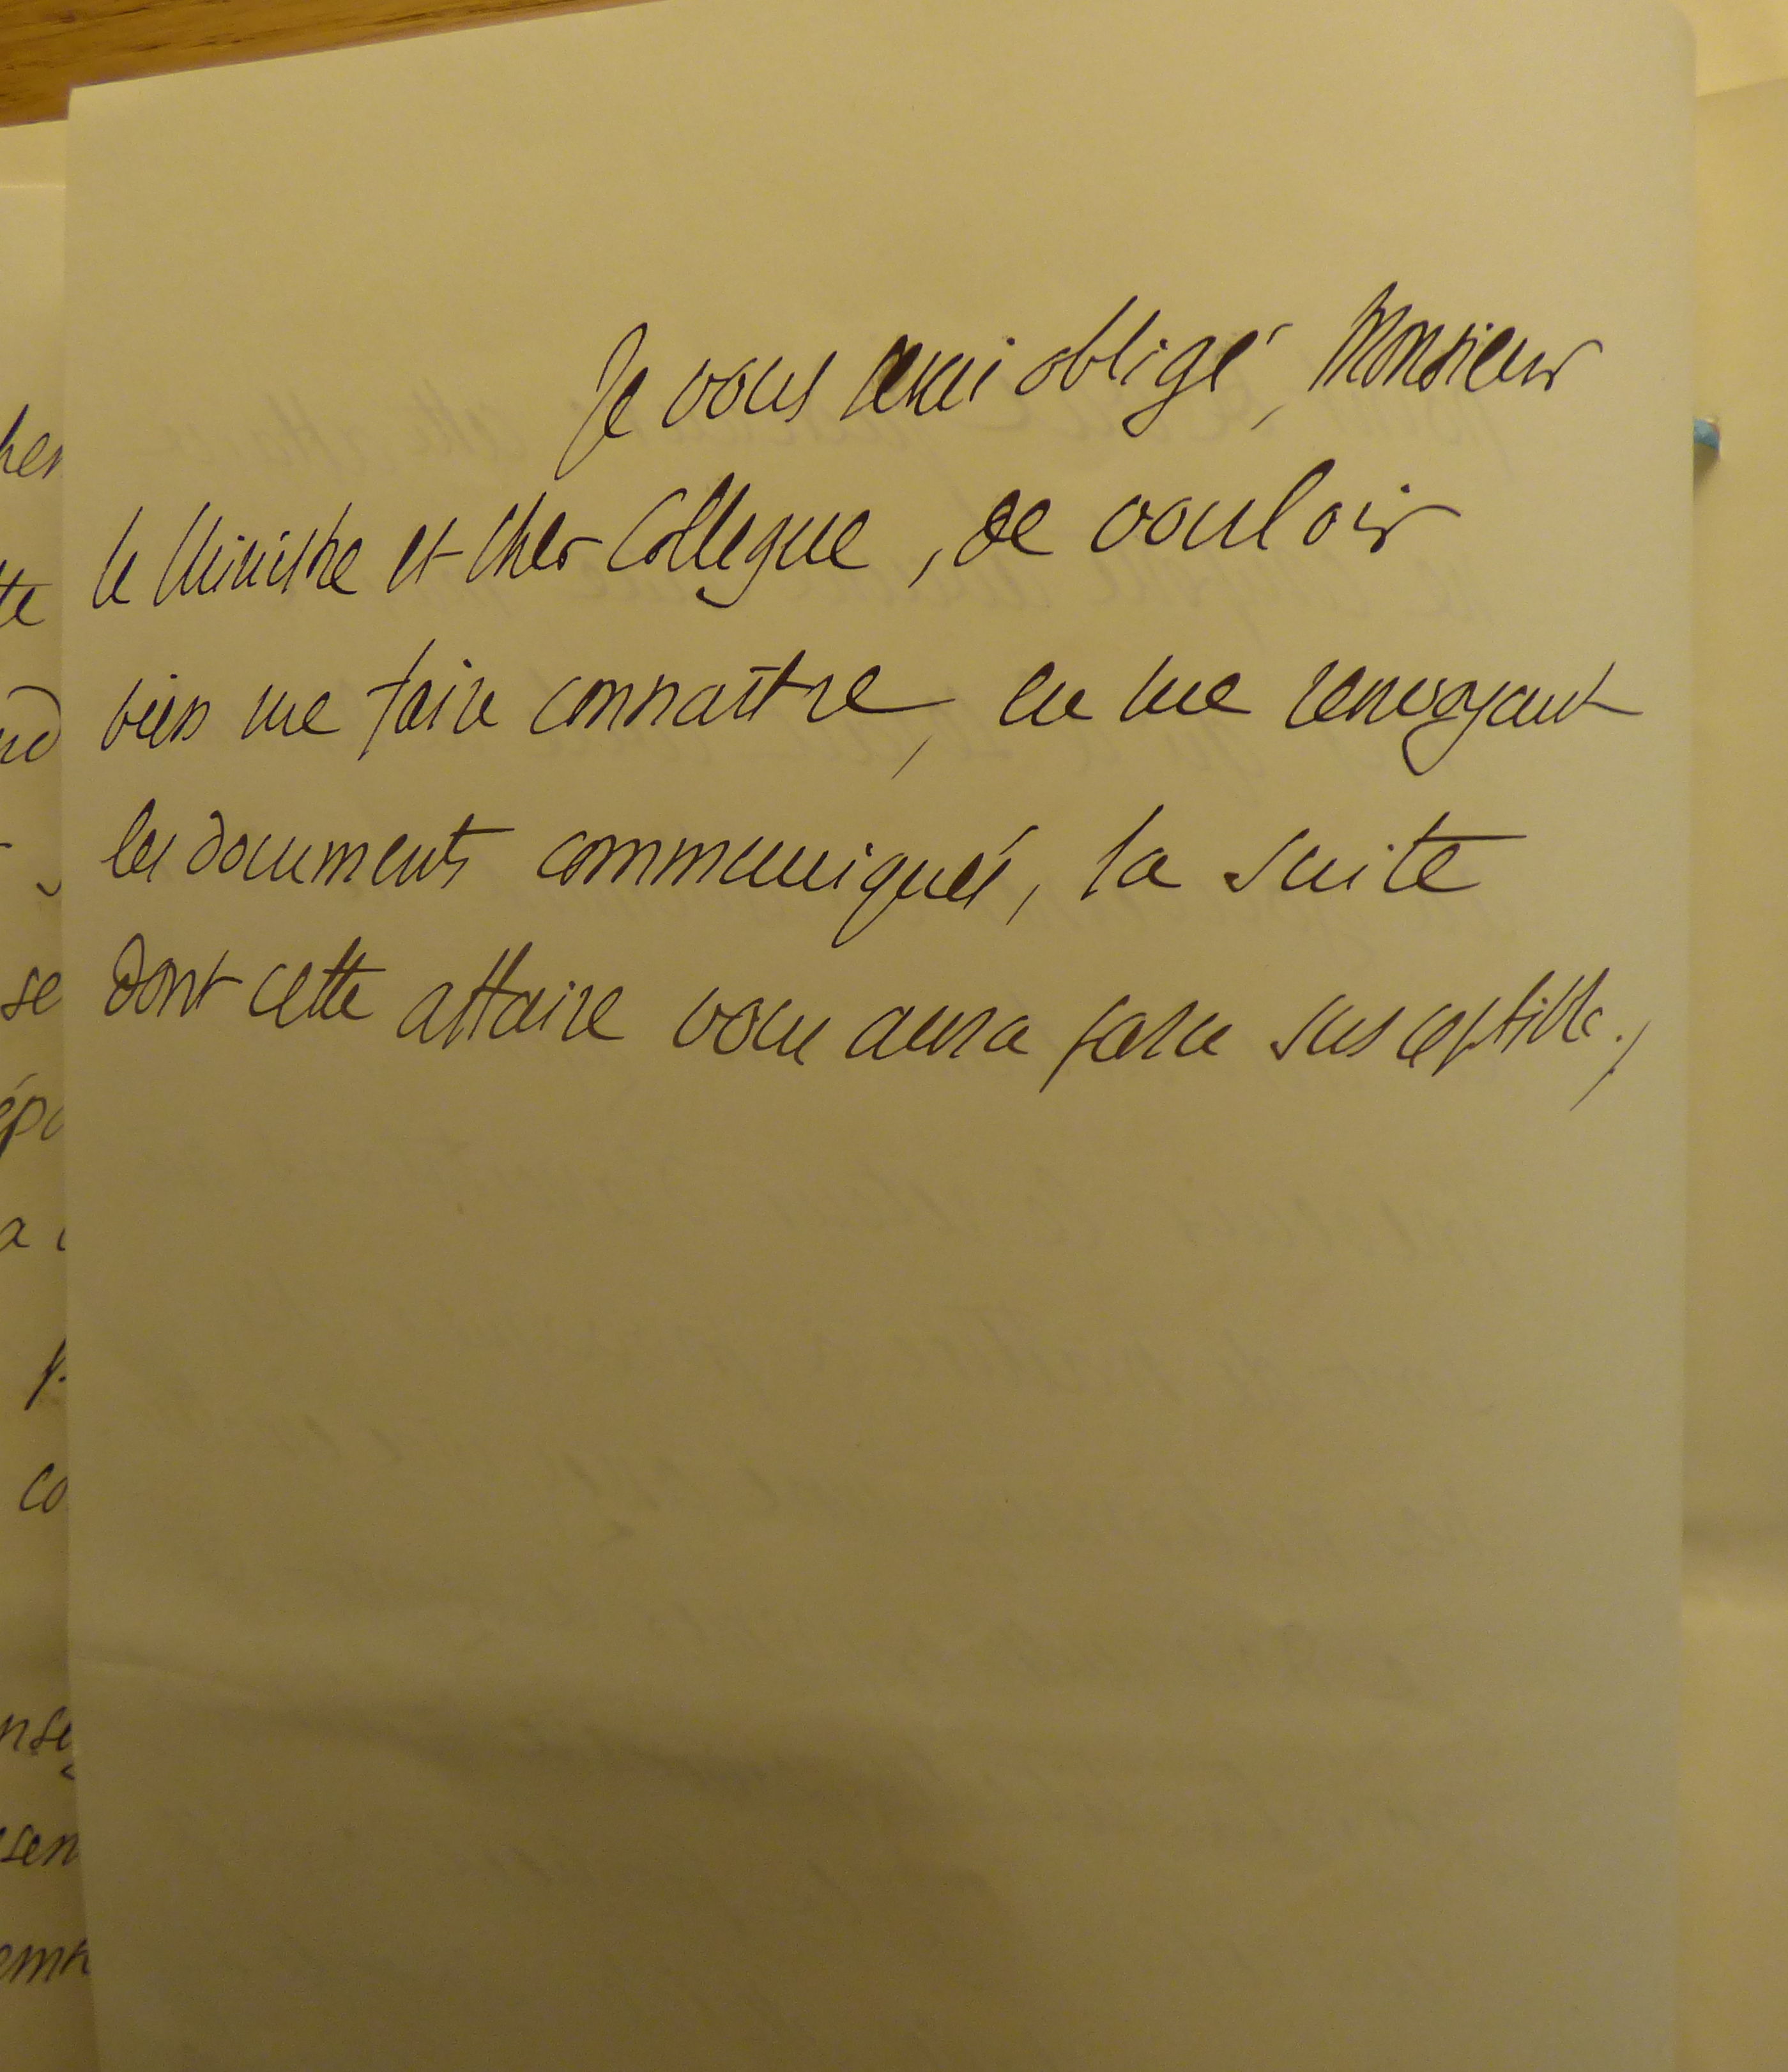 Je vous serai obligé, Monsieur
le Ministre et Cher Collègue, de vouloir
bien me faire connaître, en me renvoyant
les documents communiqués, la suite
dont cette affaire vous aura paru susceptible./